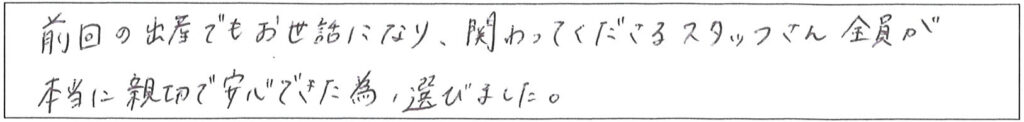 前回の出産でもお世話になり、関わってくださるスタッフさん全員が
本当に親切で安心できた為、選びました。